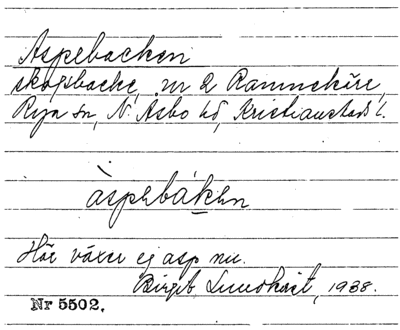 Aspebacken
skogsbacke, nr 2 Rammekärr,
Rya sn, N. Åsbo hd, Kristianstads l.
àspebáken
Här växer ej asp nu.
Birgit Lundkvist, 1938.
Nr 5502.